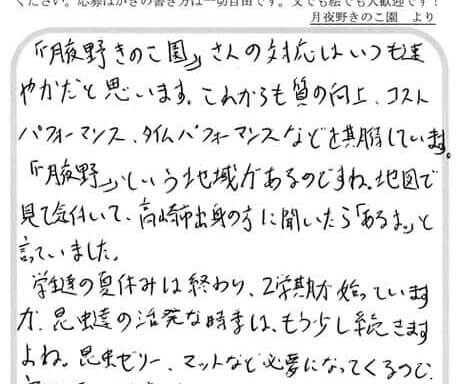 ください。応募はがきの書き方は一切自由です。文でも絵でも大歓迎です！
月夜野きのこ園　より
『月夜野きのこ園』さんの対応はいつも速
やかだと思います。これからも質の向上、コスト
パフォーマンス、タイムパフォーマンスなどを期待しています。
『月夜野』という地域があるのですね。地図で
見て気付いて、高崎市出身の方に聞いたら「あるよ」と
言っていました。
学生達の夏休みは終わり、2学期が始っています
が、昆虫達の活発な時季は、もう少し続きます
よね。昆虫ゼリー、マットなど必要になってくるので、